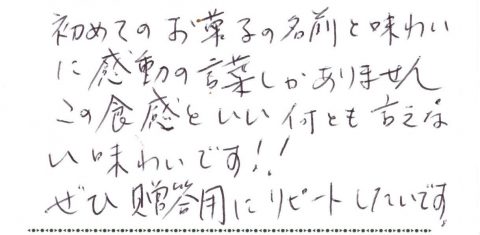 初めてのお菓子の名前と味わい
に感動の言葉しかありません
この食感といい何とも言えな
い味わいです!!
ぜひ贈答用にリピートしたいです。